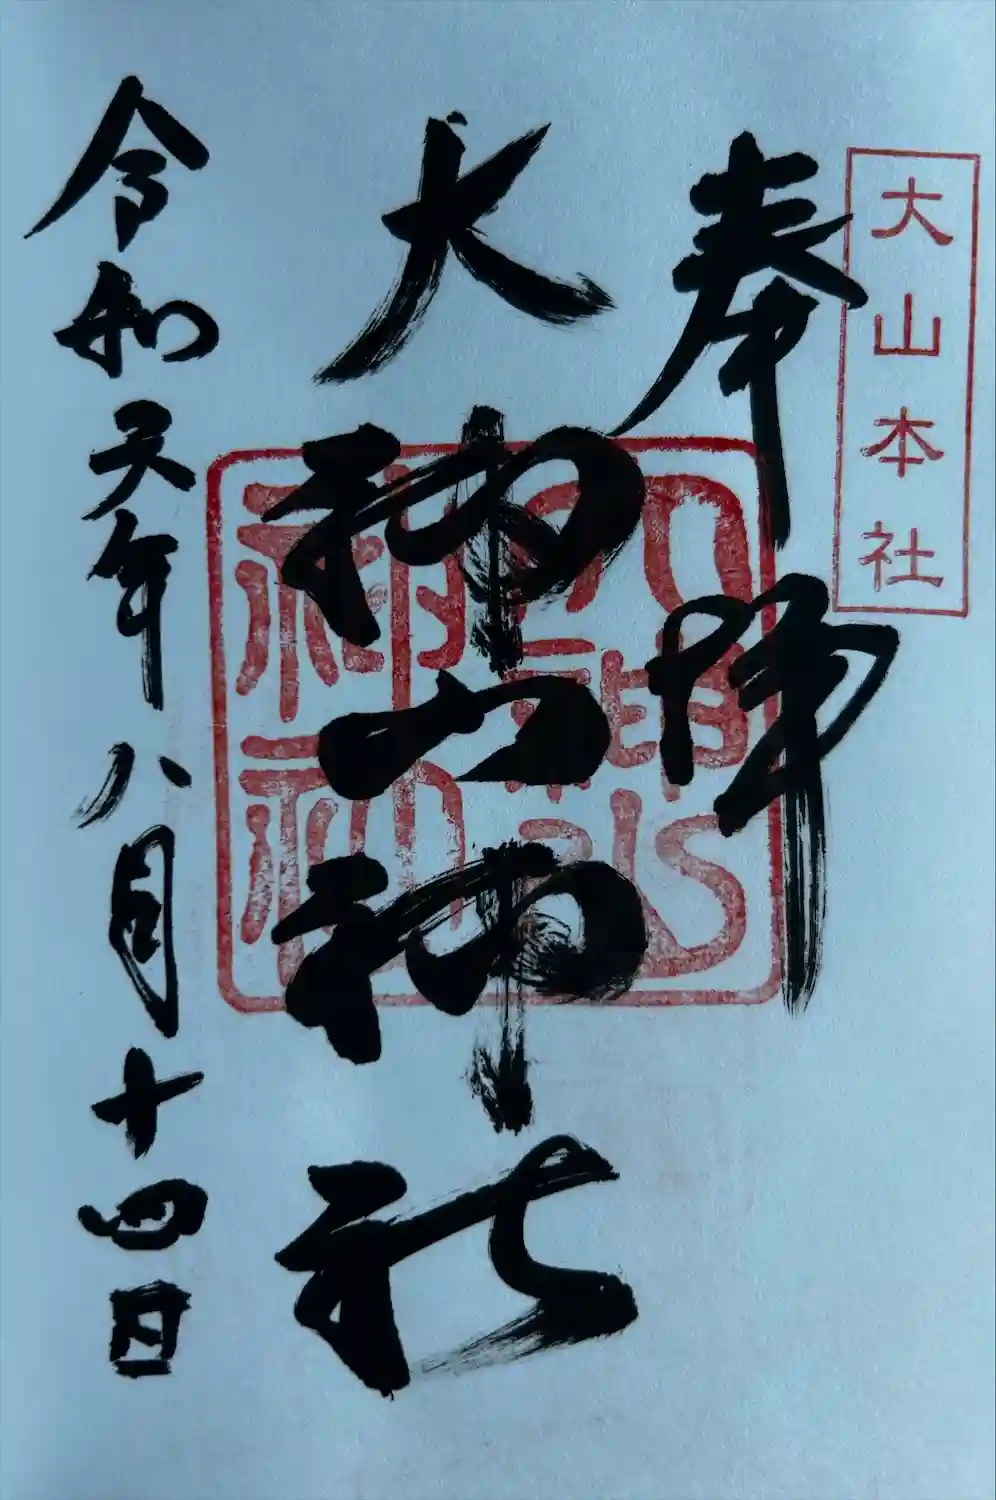 大山本社
奉拝
大神山神社
令和元年八月十四日